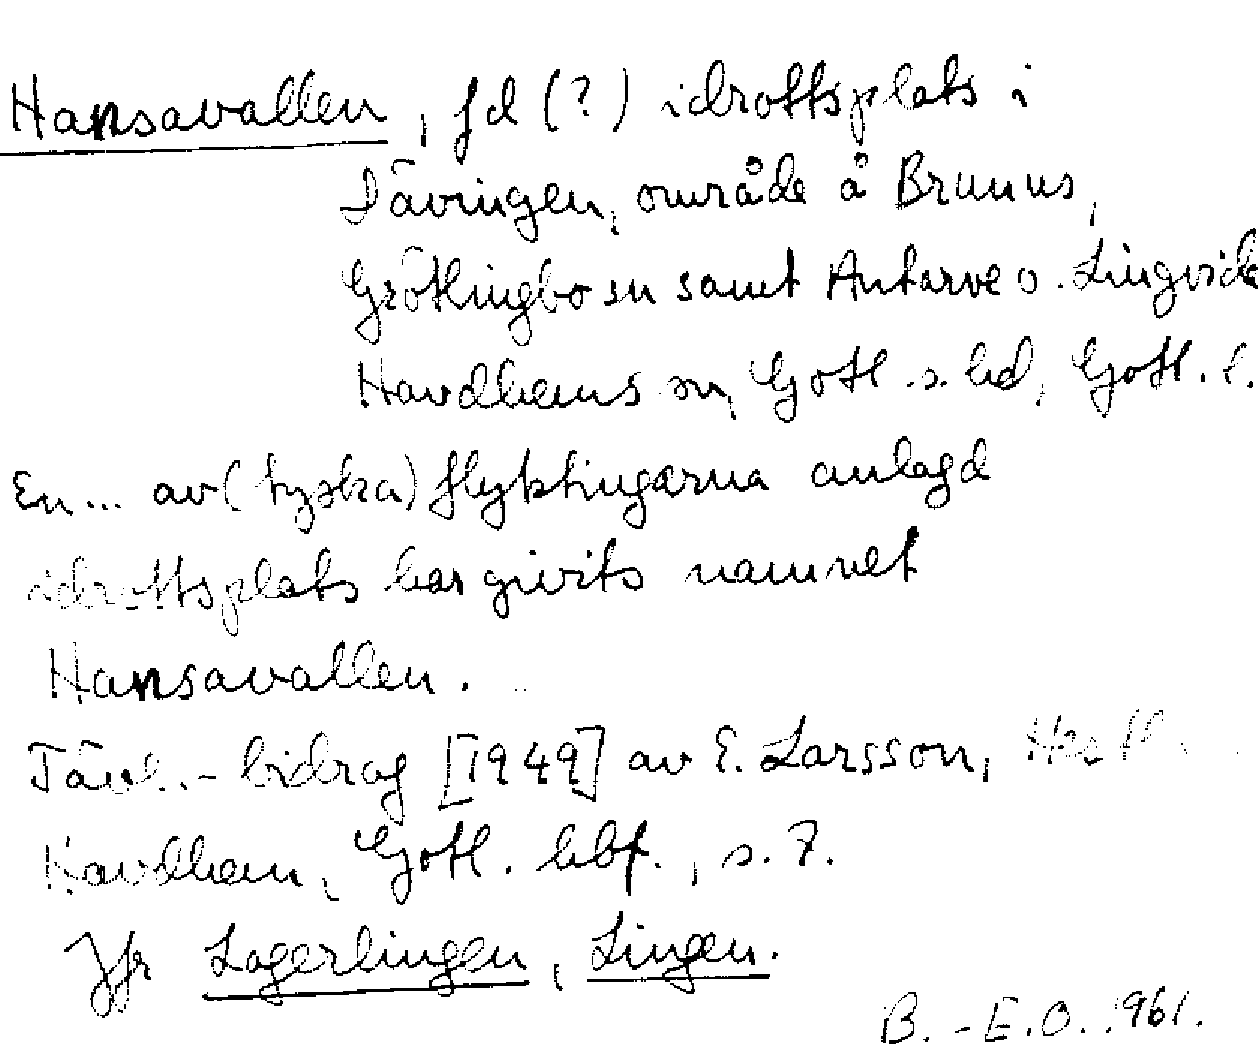 Hansavallen, fd (?) idrottsplats i
Tävringen, område å Brunns,
Grötlingbo sn samt Antarve o. Lingvide
Havdhems sn, Gotl. s. hd, Gotl. l.
En... av (tyska) flyktingarna anlagd
idrottsplats har givits namnet
Hansavallen.
Tävl.-bidrag [1949] av E. Larsson,
Havdhem, Gotl. hbf., s. 7.
Jfr Lagerlingen, Lingen.
B.-E.O. 1961.